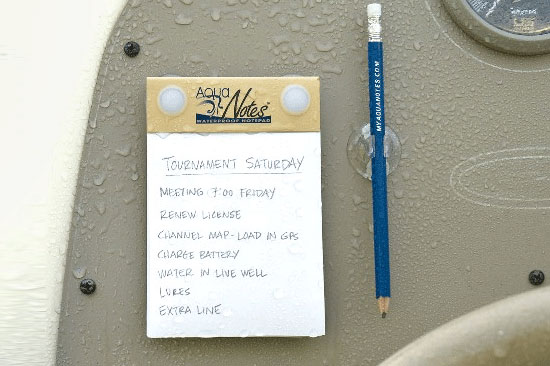 Aqua
Notes™
WATERPROOF NOTEPAD
TOURNAMENT SATURDAY
MEETING 7:00 FRIDAY
RENEW LICENSE
CHANNEL MAP-LOAD IN GPS
CHARGE BATTERY
WATER IN LIVE WELL
LURES
EXTRA LINE
MYAQUANOTES.COM